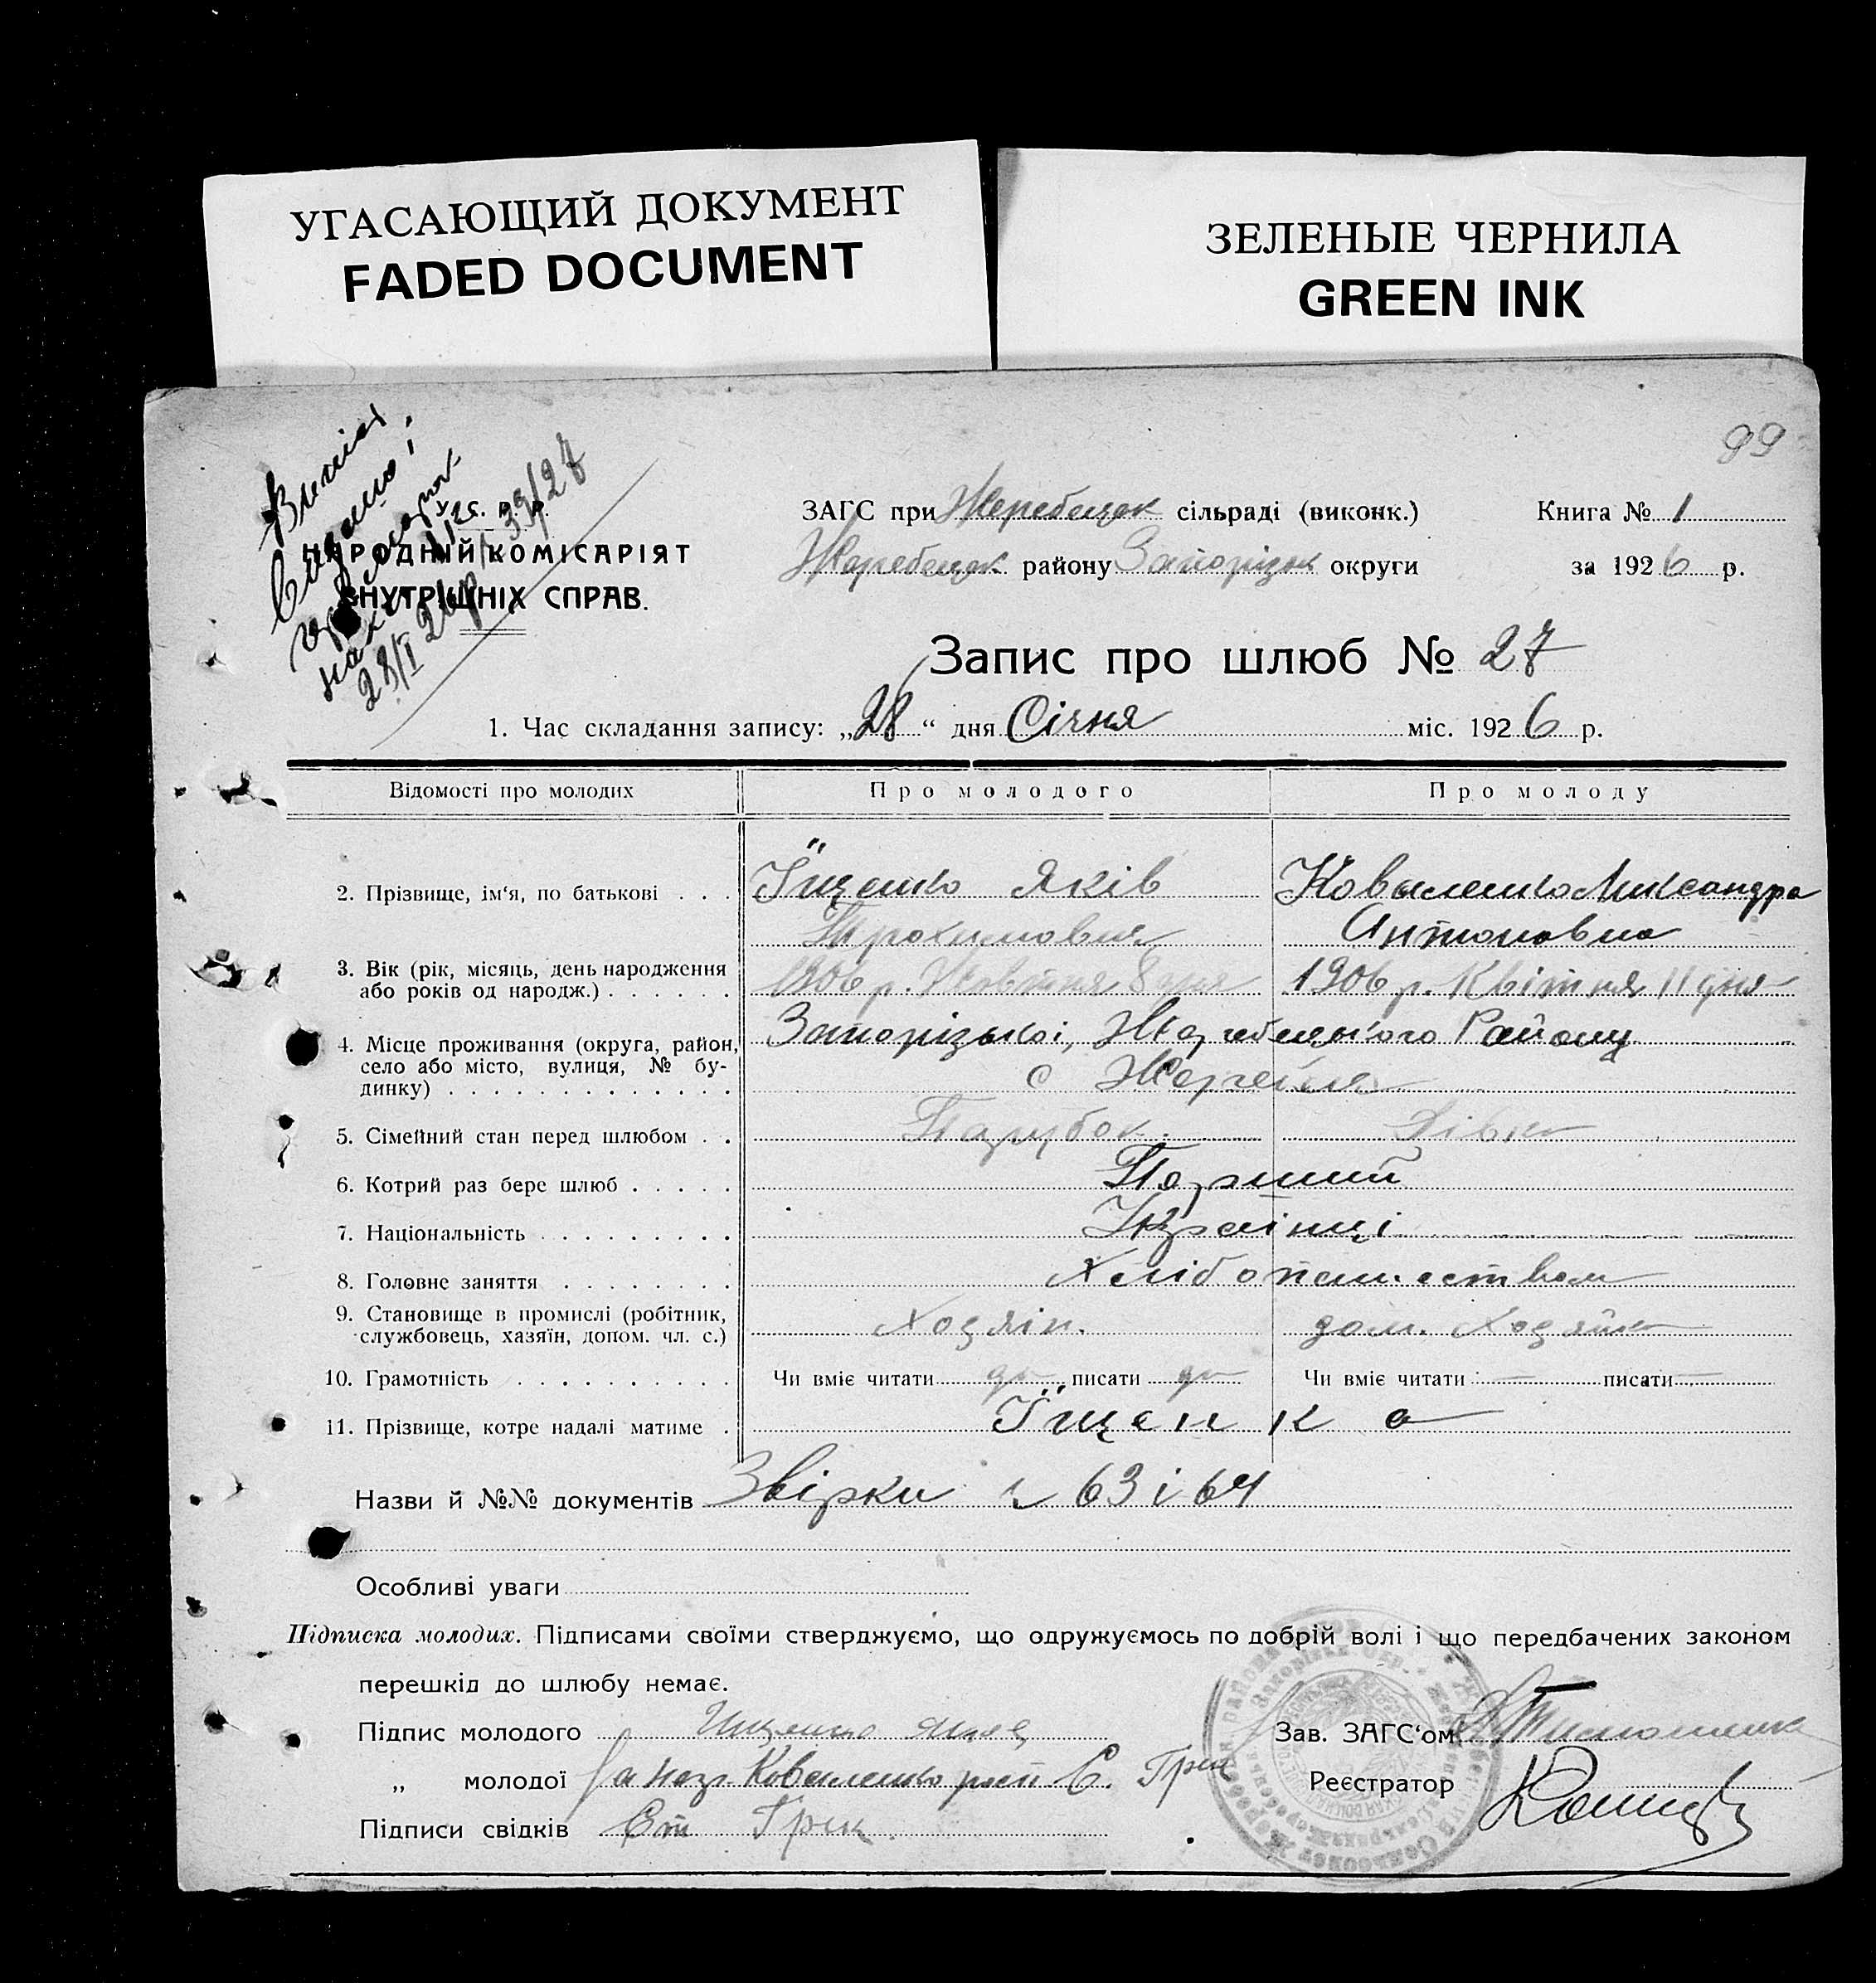 УГАСАЮЩИЙ ДОКУМЕНТ
FADED DOCUMENT
ЗЕЛЕНЫЕ ЧЕРНИЛА
GREEN INK
99
У.С.Р.Р.
НАРОДНІЙ КОМІСАРІЯТ
ВНУТРІШНІХ СПРАВ.
28/I 26 р
ЗАГС при Жеребецьк сільраді (виконк.)
Книга № 1
Жеребецьк району Запорізьк округи
за 1926 р.
Запис про шлюб № 27
1. Час складання запису: „28“ дня Січня міс. 1926 р.
Відомості про молодих Про молодого Про молоду
2. Прізвище, ім'я, по батькові . . . Їщенко Яків Коваленко Олександра
Трохимович Антоновна
3. Вік (рік, місяць, день народження 1906 р. Жовтня 8 дня 1906 р. Квітня 11 дня
або років од народж.) . . . . . .
4. Місце проживання (округа, район, Запорізької, Жеребецького Району
село або місто, вулиця, № бу- с Жеребець
динку) . . . . . . . . . . . . .
5. Сімейний стан перед шлюбом . . Парубок. Дівка
6. Котрий раз бере шлюб . . . . . Перший
7. Національність . . . . . . . . . Українці
8. Головне заняття . . . . . . . . Хліборобством
9. Становище в промислі (робітник, Хозяін. дом. Хозяйка
службовець, хазяїн, допом. чл. с.)
10. Грамотність . . . . . . . . . . Чи вміє читати да писати да Чи вміє читати — писати —
11. Прізвище, котре надалі матиме . Їщенко
Назви й №№ документів Звірки № 63 і 64
Особливі уваги
Підписка молодих. Підписами своїми стверджуємо, що одружуємось по добрій волі і що передбачених законом
перешкід до шлюбу немає.
Підпис молодого Ищенко Яков
Зав. ЗАГС'ом Тимошенко
„ молодої за негр. Коваленко росп Є. Грек
Реєстратор
Підписи свідків Єт Грек